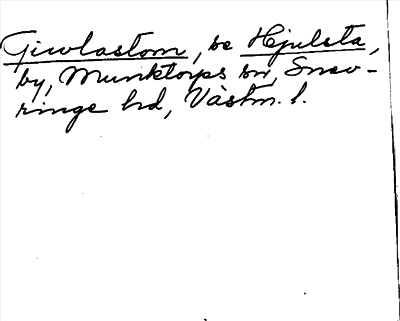 Giwlastom, se Hjulsta,
by, Munktorps sn, Snev-
ringe hd, Västm. l.